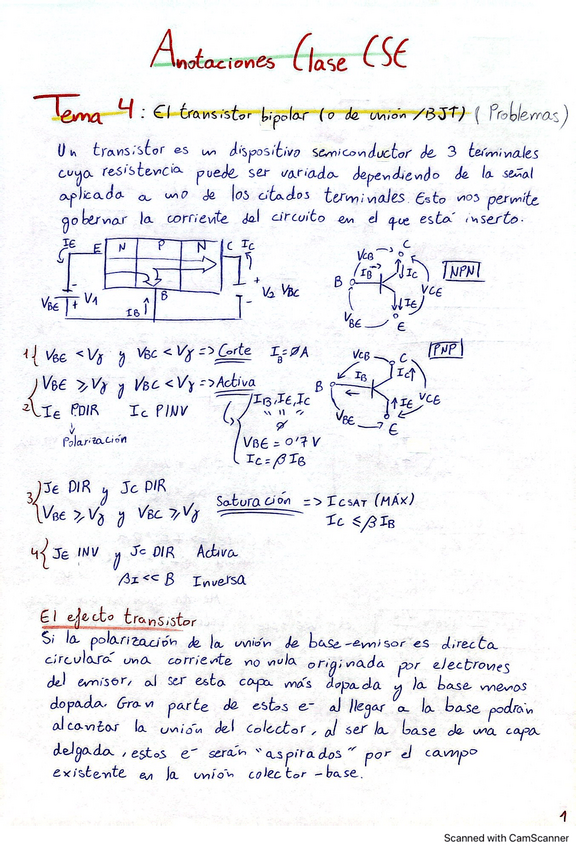 Anotaciones Clase CSE
Tema 4: El transistor bipolar (o de unión /BJT) (Problemas)
Un transistor es un dispositivo semiconductor de 3 terminales
cuya resistencia puede ser variada dependiendo de la señal
aplicada a uno de los citados terminales. Esto nos permite
gobernar la corriente del circuito en el que está inserto.
IE E N P N C IC
VBE - + V1 IB B + - V2 VBC
VCB C B IB IC IE VCE VBE E NPN
1{ VBE < Vγ y VBC < Vγ => Corte IB = ØA
VCB C B IB IC IE VCE VBE E PNP
2{ VBE ≥ Vγ y VBC < Vγ => Activa
IE PDIR IC PINV
Polarización
IB, IE, IC
" " "
Ø
VBE = 0'7 V
IC = β IB
3{ JE DIR y JC DIR
VBE ≥ Vγ y VBC ≥ Vγ Saturación => ICSAT (MÁX)
IC ≤ β IB
4{ JE INV y JC DIR Activa
βI << B Inversa
El efecto transistor
Si la polarización de la unión de base-emisor es directa
circulará una corriente no nula originada por electrones
del emisor, al ser esta capa más dopada y la base menos
dopada. Gran parte de estos e- al llegar a la base podrán
alcantar la unión del colector, al ser la base de una capa
delgada, estos e- serán "aspirados" por el campo
existente en la unión colector-base.
1
Scanned with CamScanner